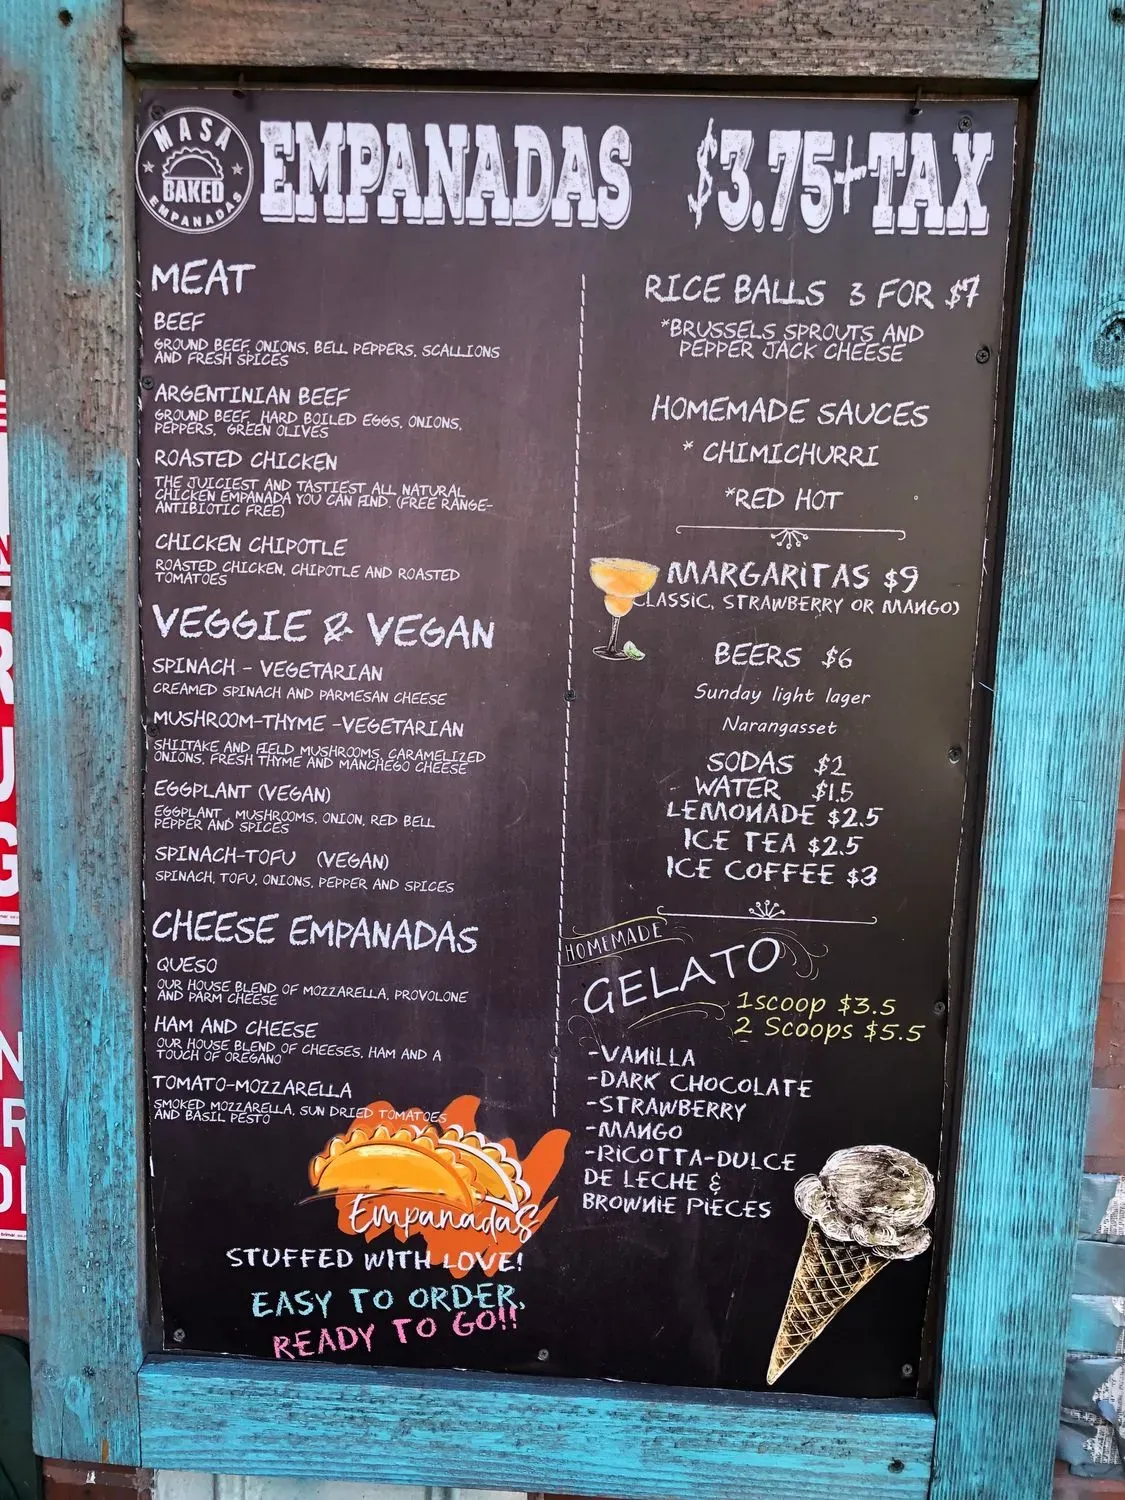 MASA
BAKED
EMPANADAS
EMPANADAS $3.75+TAX
MEAT
BEEF
GROUND BEEF, ONIONS, BELL PEPPERS, SCALLIONS
AND FRESH SPICES
ARGENTINIAN BEEF
GROUND BEEF, HARD BOILED EGGS, ONIONS,
PEPPERS, GREEN OLIVES
ROASTED CHICKEN
THE JUICIEST AND TASTIEST ALL NATURAL
CHICKEN EMPANADA YOU CAN FIND. (FREE RANGE-
ANTIBIOTIC FREE)
CHICKEN CHIPOTLE
ROASTED CHICKEN, CHIPOTLE AND ROASTED
TOMATOES
VEGGIE & VEGAN
SPINACH - VEGETARIAN
CREAMED SPINACH AND PARMESAN CHEESE
MUSHROOM-THYME -VEGETARIAN
SHIITAKE AND FIELD MUSHROOMS, CARAMELIZED
ONIONS, FRESH THYME AND MANCHEGO CHEESE
EGGPLANT (VEGAN)
EGGPLANT, MUSHROOMS, ONION, RED BELL
PEPPER AND SPICES
SPINACH-TOFU (VEGAN)
SPINACH, TOFU, ONIONS, PEPPER AND SPICES
CHEESE EMPANADAS
QUESO
OUR HOUSE BLEND OF MOZZARELLA, PROVOLONE
AND PARM CHEESE
HAM AND CHEESE
OUR HOUSE BLEND OF CHEESES, HAM AND A
TOUCH OF OREGANO
TOMATO-MOZZARELLA
SMOKED MOZZARELLA, SUN DRIED TOMATOES
AND BASIL PESTO
Empanadas
STUFFED WITH LOVE!
EASY TO ORDER,
READY TO GO!!
RICE BALLS 3 FOR $7
*BRUSSELS SPROUTS AND
PEPPER JACK CHEESE
HOMEMADE SAUCES
* CHIMICHURRI
*RED HOT
MARGARITAS $9
CLASSIC, STRAWBERRY OR MANGO)
BEERS $6
Sunday light lager
Narangasset
SODAS $2
WATER $1.5
LEMONADE $2.5
ICE TEA $2.5
ICE COFFEE $3
HOMEMADE
GELATO
1scoop $3.5
2 Scoops $5.5
-VANILLA
-DARK CHOCOLATE
-STRAWBERRY
-MANGO
-RICOTTA-DULCE
DE LECHE &
BROWNIE PIECES